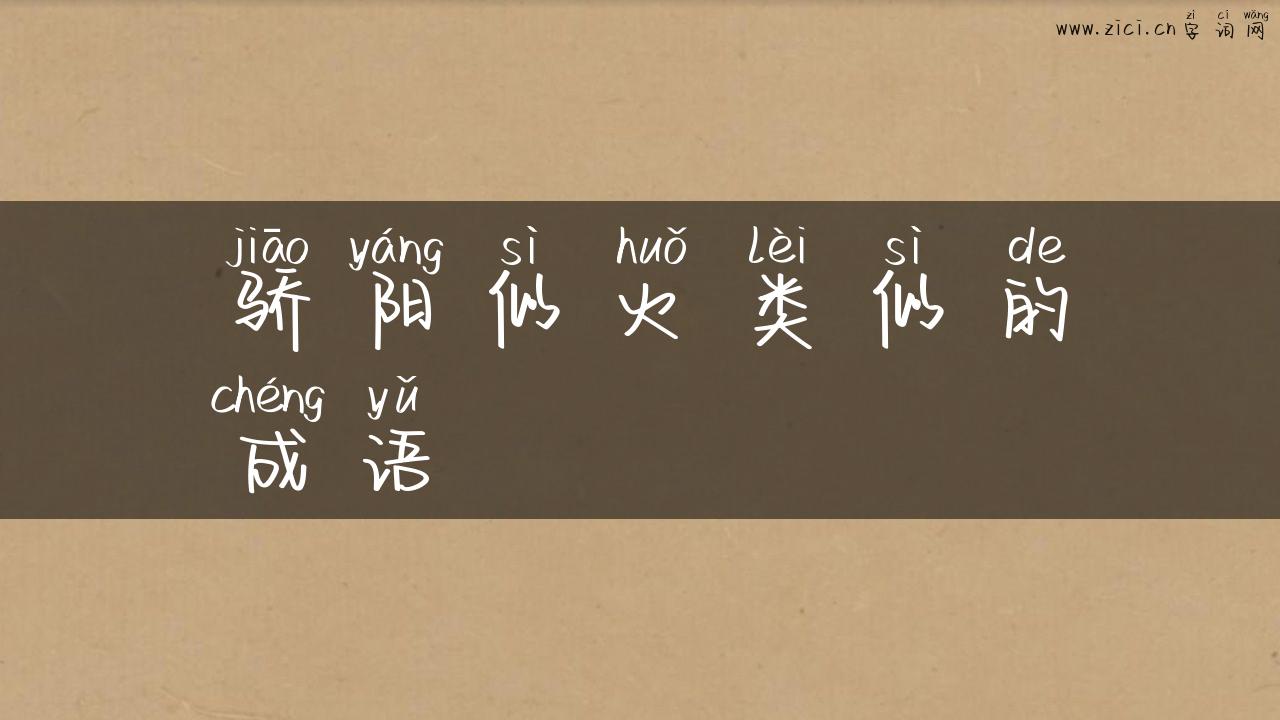 zì cí wǎng
www.zici.cn 字 词 网
jiāo yáng sì huǒ lèi sì de
骄 阳 似 火 类 似 的
chéng yǔ
成 语